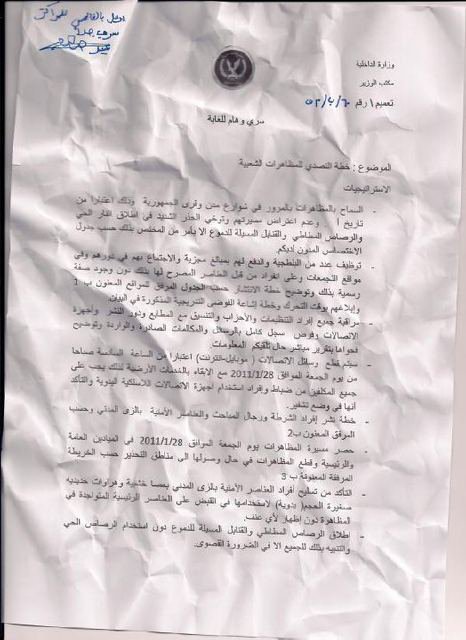 سري جدا
وزارة الداخلية
مكتب الوزير
تعميم / رقم ٦٠/ب/٥٢
سري وهام للغاية
الموضوع : خطة التصدي للمظاهرات الشعبية
الاستراتيجيات
- السماح بالمظاهرات بالمرور في شوارع مدن وقرى الجمهورية وذلك اعتبارا من
تاريخ وعدم اعتراض مسيرتهم وتوخي الحذر الشديد في اطلاق النار الحي
والرصاص المطاطي والقنابل المسيلة للدموع الا بأمر من المختص بذلك حسب جدول
الاختصاص المدون لديكم
- توظيف عدد من البلطجية والدفع لهم بمبالغ مجزية والاجتماع بهم في
مواقع التجمعات وعلى انفراد من قبل العناصر المصرح لها بذلك دون وجود صفة
رسمية بذلك وتوضيح خطة الانتشار حسب الجدول الموفق للمواقع المعنون ب 1
وابلاغهم بوقت التحرك وخطة إشاعة الفوضى التدريجية المذكورة في البيان.
- مراقبة جميع إفراد التنظيمات والأحزاب والتنسيق مع المطابع ودور النشر وأجهزة
الاتصالات وفرض سجل كامل بالرسائل والمكالمات الصادرة والواردة وتوضيح
فحواها بتقرير مباشر حال المعلومات.
- سيتم قطع وسائل الاتصالات ( موبايل-انترنت) اعتبارا من الساعة السادسة صباحا
من يوم الجمعة الموافق 2011/1/28 مع الإبقاء بالخدمات الأرضية لذلك يجب على
جميع المكلفين من ضباط وإفراد استخدام اجهزة الاتصالات اللاسلكية اليدوية والتأكد
أنها في وضع تشفير.
- خطة نشر إفراد الشرطة ورجال المباحث والعناصر الأمنية بالزى المدني وحسب
المرفق المعنون ب2
- حصر مسيرة المظاهرات يوم الجمعة الموافق 2011/1/28 في الميادين العامة
والرئيسية وقطع المظاهرات في حال وصولها الى مناطق التحذير حسب الخريطة
المرفقة المعنونة ب 3
- التأكد من تسليح أفراد العناصر الأمنية بالزى المدني بعصا خشبية وهراوات حديدية
صغيرة الحجم( يدوية) لاستخدامها في القبض على العناصر الرئيسية المتواجدة في
المظاهرة دون إظهار لأي عنف.
- اطلاق الرصاص المطاطي والقنابل المسيلة للدموع دون استخدام الرصاص الحي
والتنبيه بذلك للجميع الا في الضرورة القصوى.